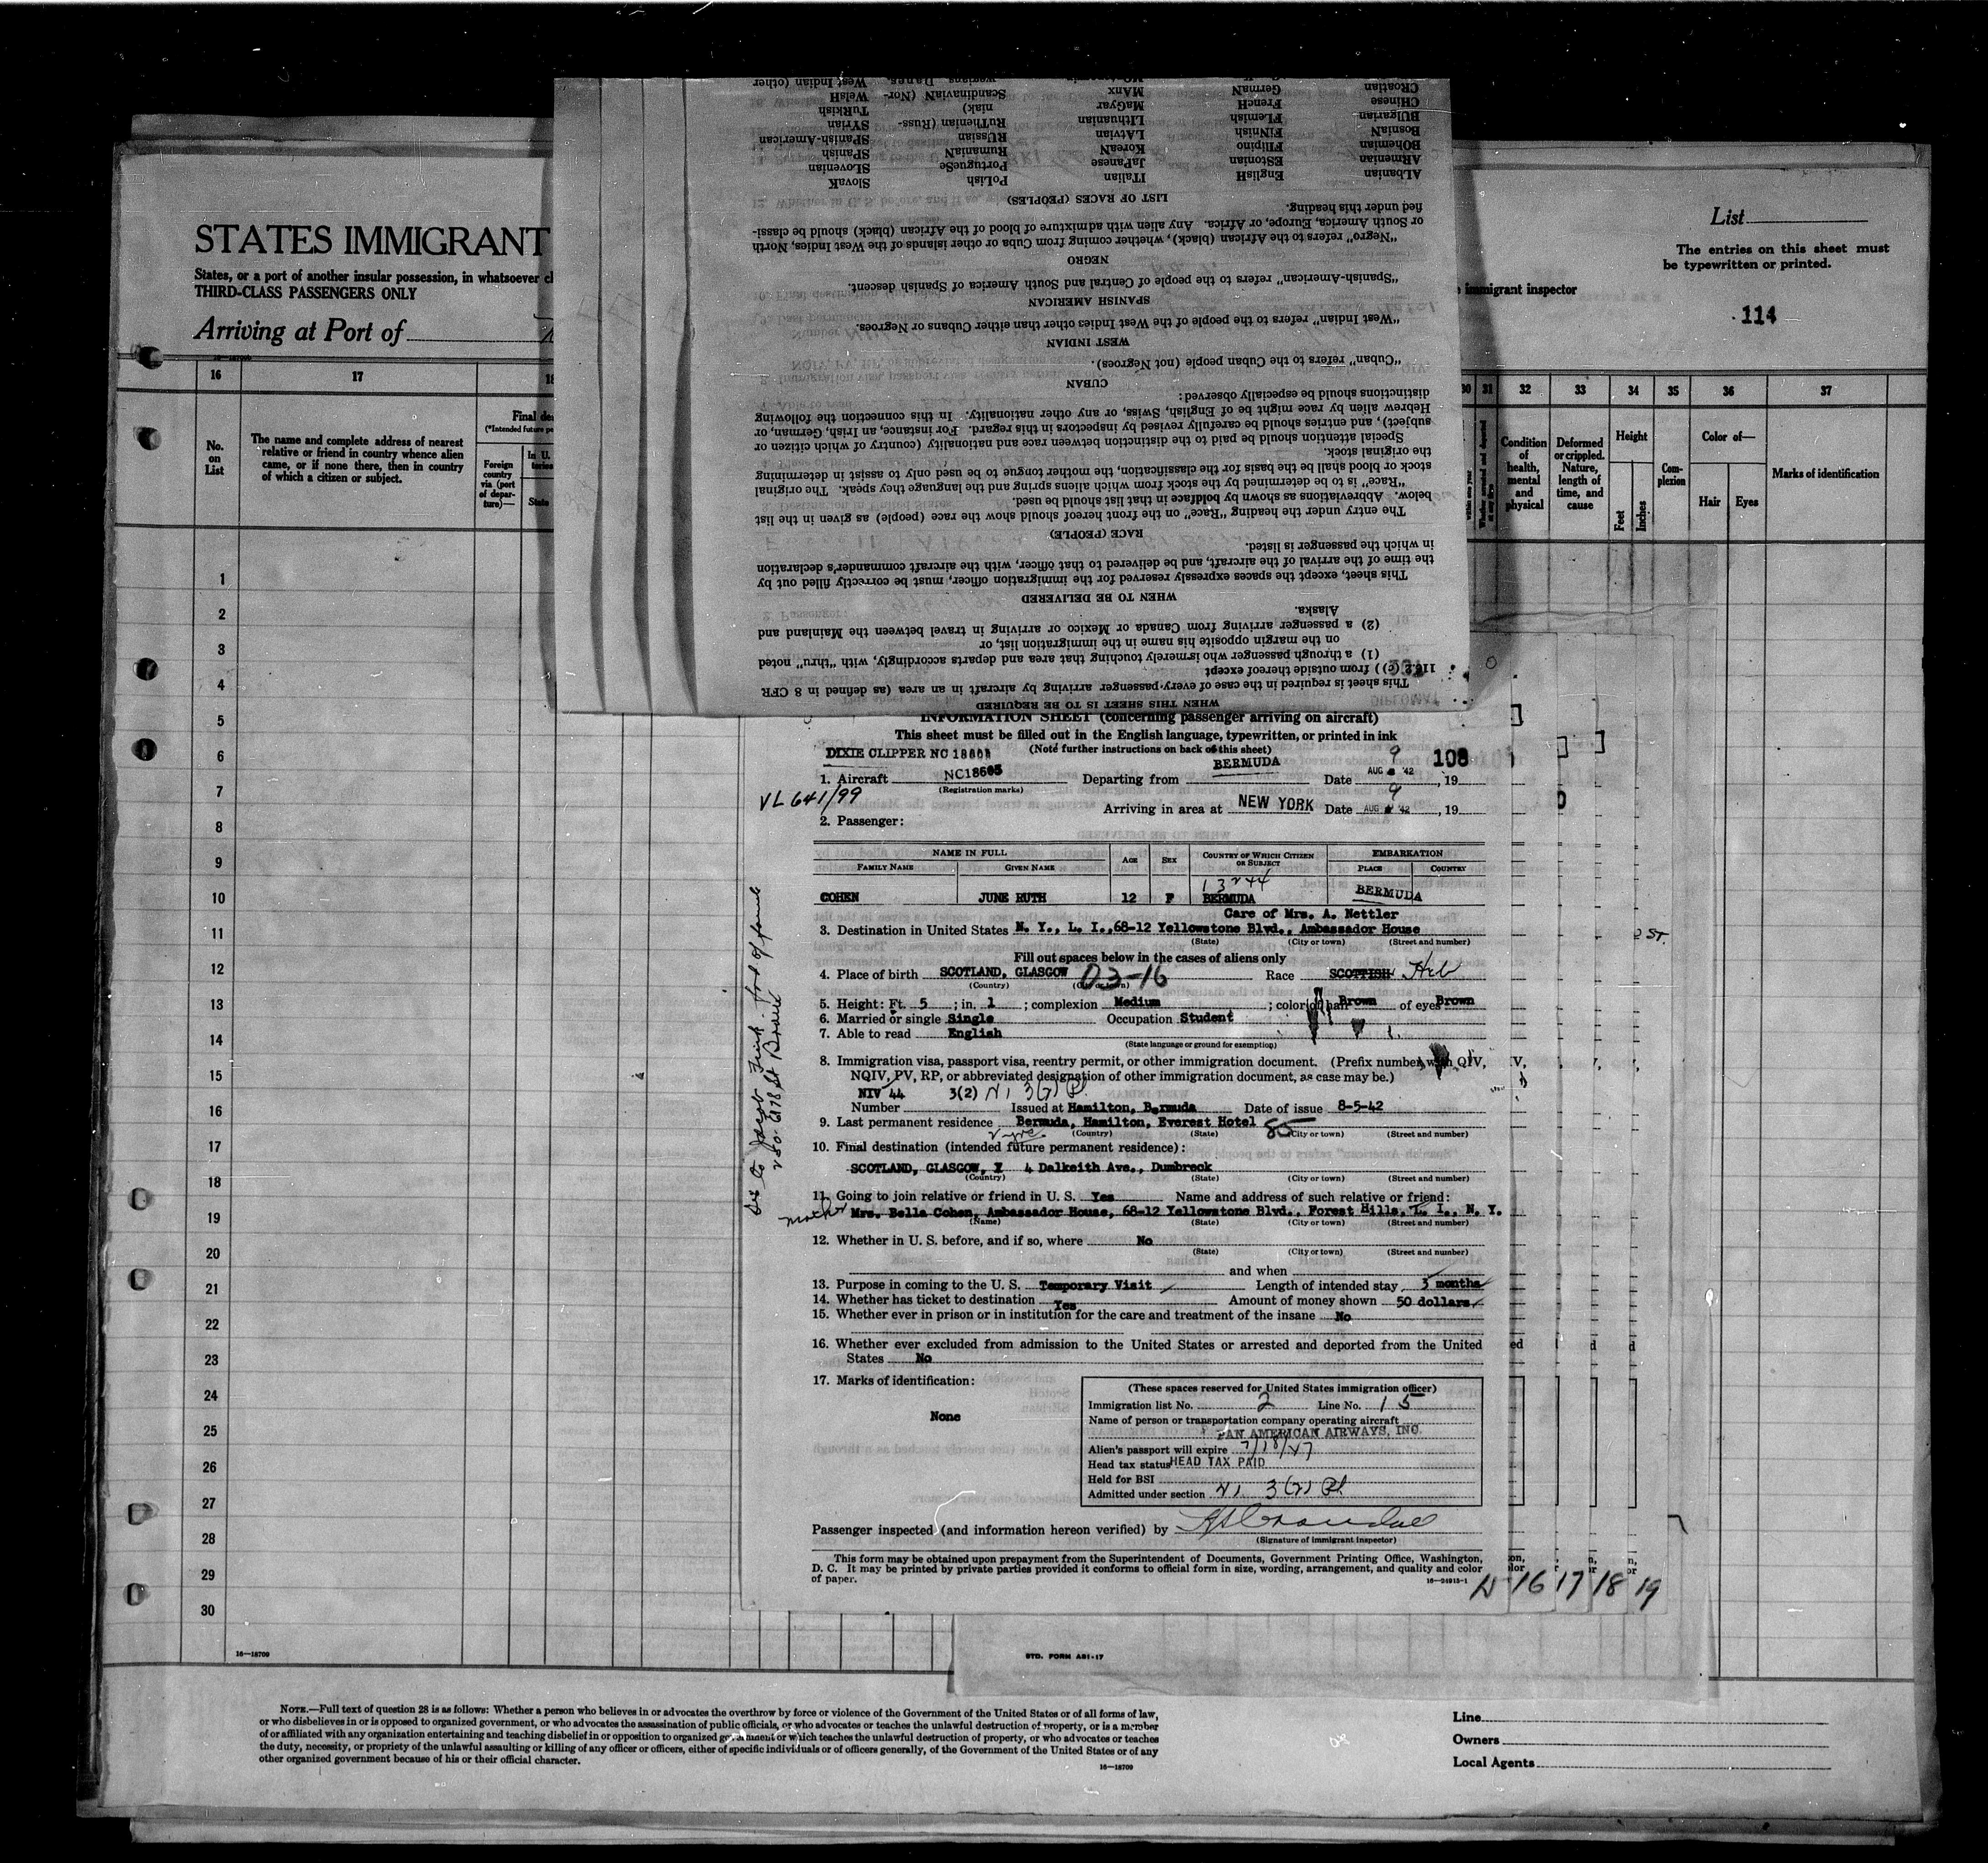 STATES IMMIGRANT
States, or a port of another insular possession, in whatsoever
THIRD-CLASS PASSENGERS ONLY
Arriving at Port of
16—18709
16 17
No. on List
The name and complete address of nearest relative or friend in country whence alien came, or if none there, then in country of which a citizen or subject.
Foreign country via (port of departure)—
State
1
2
3
4
5
6
7
8
9
10
11
12
13
14
15
16
17
18
19
20
21
22
23
24
25
26
27
28
29
30
16—18709
List
The entries on this sheet must
be typewritten or printed.
immigrant inspector
114
30 31 32 33 34 35 36 37
Condition of health, mental and physical
Deformed or crippled. Nature, length of time, and cause
Height
Feet
Inches
Complexion
Color of—
Hair
Eyes
Marks of identification
WHEN THIS SHEET IS TO BE REQUIRED
This sheet is required in the case of every passenger arriving by aircraft in an area (as defined in 8 CFR
116.2 (c)) from outside thereof except
(1) a through passenger who is merely touching that area and departs accordingly, with "thru" noted
on the margin opposite his name in the immigration list, or
(2) a passenger arriving from Canada or Mexico or arriving in travel between the Mainland and
Alaska.
WHEN TO BE DELIVERED
This sheet, except the spaces expressly reserved for the immigration officer, must be correctly filled out by
the time of the arrival of the aircraft, and be delivered to that officer, with the aircraft commander's declaration
in which the passenger is listed.
RACE (PEOPLE)
The entry under the heading "Race" on the front hereof should show the race (people) as given in the list
below. Abbreviations as shown by boldface in that list should be used.
"Race" is to be determined by the stock from which aliens spring and the language they speak. The original
stock or blood shall be the basis for the classification, the mother tongue to be used only to assist in determining
the original stock.
Special attention should be paid to the distinction between race and nationality (country of which citizen or
subject), and entries should be carefully revised by inspectors in this regard. For instance, an Irish, German, or
Hebrew alien by race might be of English, Swiss, or any other nationality. In this connection the following
distinctions should be especially observed:
CUBAN
"Cuban" refers to the Cuban people (not Negroes).
WEST INDIAN
"West Indian" refers to the people of the West Indies other than either Cubans or Negroes.
SPANISH AMERICAN
"Spanish-American" refers to the people of Central and South America of Spanish descent.
NEGRO
"Negro" refers to the African (black), whether coming from Cuba or other islands of the West Indies, North
or South America, Europe, or Africa. Any alien with admixture of blood of the African (black) should be classi-
fied under this heading.
LIST OF RACES (PEOPLES)
ALbanian EnglisH ITalian PoLish SlovaK
ARmenian EStonian JaPanese PortugueSe SLovenian
BOhemian FIlipino KoreaN RumaniaN SPanish
BosniaN FINnish LAtvian RUssian SPanish-American
BUlgarian FLemish LIthuanian RuThenian (Russ- SYrian
CHinese FrencH MaGyar niak) TuRkish
CRoatian GermaN MAnx ScandinaviaN (Nor- WelsH
West Indian (other
INFORMATION SHEET (concerning passenger arriving on aircraft)
This sheet must be filled out in the English language, typewritten, or printed in ink
(Note further instructions on back of this sheet)
DIXIE CLIPPER NC 18605
108
1. Aircraft NC18605 Departing from BERMUDA Date AUG 9 '42, 19
(Registration marks)
VL 641/99
Arriving in area at NEW YORK Date AUG 9 '42, 19
2. Passenger:
NAME IN FULL AGE SEX COUNTRY OF WHICH CITIZEN OR SUBJECT EMBARKATION
FAMILY NAME GIVEN NAME PLACE COUNTRY
COHEN JUNE RUTH 12 F BERMUDA BERMUDA
Care of Mrs. A. Nettler
3. Destination in United States N. Y., L. I., 68-12 Yellowstone Blvd., Ambassador House
(State) (City or town) (Street and number)
Fill out spaces below in the cases of aliens only
4. Place of birth SCOTLAND, GLASGOW D3-16 Race SCOTTISH Heb
(Country) (City or town)
5. Height: Ft. 5; in. 1; complexion Medium; color of hair Brown of eyes Brown
6. Married or single Single Occupation Student
7. Able to read English
(State language or ground for exemption)
8. Immigration visa, passport visa, reentry permit, or other immigration document. (Prefix number with QIV,
NQIV, PV, RP, or abbreviated designation of other immigration document, as case may be.)
NIV 44 3(2)
Number Issued at Hamilton, Bermuda Date of issue 8-5-42
9. Last permanent residence Bermuda, Hamilton, Everest Hotel 85
(Country) (State) (City or town) (Street and number)
10. Final destination (intended future permanent residence):
SCOTLAND, GLASGOW, 4 Dalkeith Ave., Dumbreck
(Country) (State) (City or town) (Street and number)
11. Going to join relative or friend in U. S. Yes Name and address of such relative or friend:
mother Mrs. Bella Cohen, Ambassador House, 68-12 Yellowstone Blvd., Forest Hills, L. I., N. Y.
(Name) (State) (City or town) (Street and number)
12. Whether in U. S. before, and if so, where No
(State) (City or town) (Street and number)
and when
13. Purpose in coming to the U. S. Temporary Visit Length of intended stay 3 months
14. Whether has ticket to destination Yes Amount of money shown 50 dollars
15. Whether ever in prison or in institution for the care and treatment of the insane No
16. Whether ever excluded from admission to the United States or arrested and deported from the United
States No
17. Marks of identification:
None
(These spaces reserved for United States immigration officer)
Immigration list No. 2 Line No. 15
Name of person or transportation company operating aircraft
PAN AMERICAN AIRWAYS, INC.
Alien's passport will expire 7/18/47
Head tax status HEAD TAX PAID
Held for BSI
Admitted under section
Passenger inspected (and information hereon verified) by
(Signature of immigrant inspector)
This form may be obtained upon prepayment from the Superintendent of Documents, Government Printing Office, Washington,
D. C. It may be printed by private parties provided it conforms to official form in size, wording, arrangement, and quality and color
of paper.
16—24913-1
16 17 18 19
STD. FORM ASI-17
NOTE.—Full text of question 28 is as follows: Whether a person who believes in or advocates the overthrow by force or violence of the Government of the United States or of all forms of law,
or who disbelieves in or is opposed to organized government, or who advocates the assassination of public officials, or who advocates or teaches the unlawful destruction of property, or is a member
of or affiliated with any organization entertaining and teaching disbelief in or opposition to organized government or which teaches the unlawful destruction of property, or who advocates or teaches
the duty, necessity, or propriety of the unlawful assaulting or killing of any officer or officers, either of specific individuals or of officers generally, of the Government of the United States or of any
other organized government because of his or their official character.
16—18709
Line
Owners
Local Agents